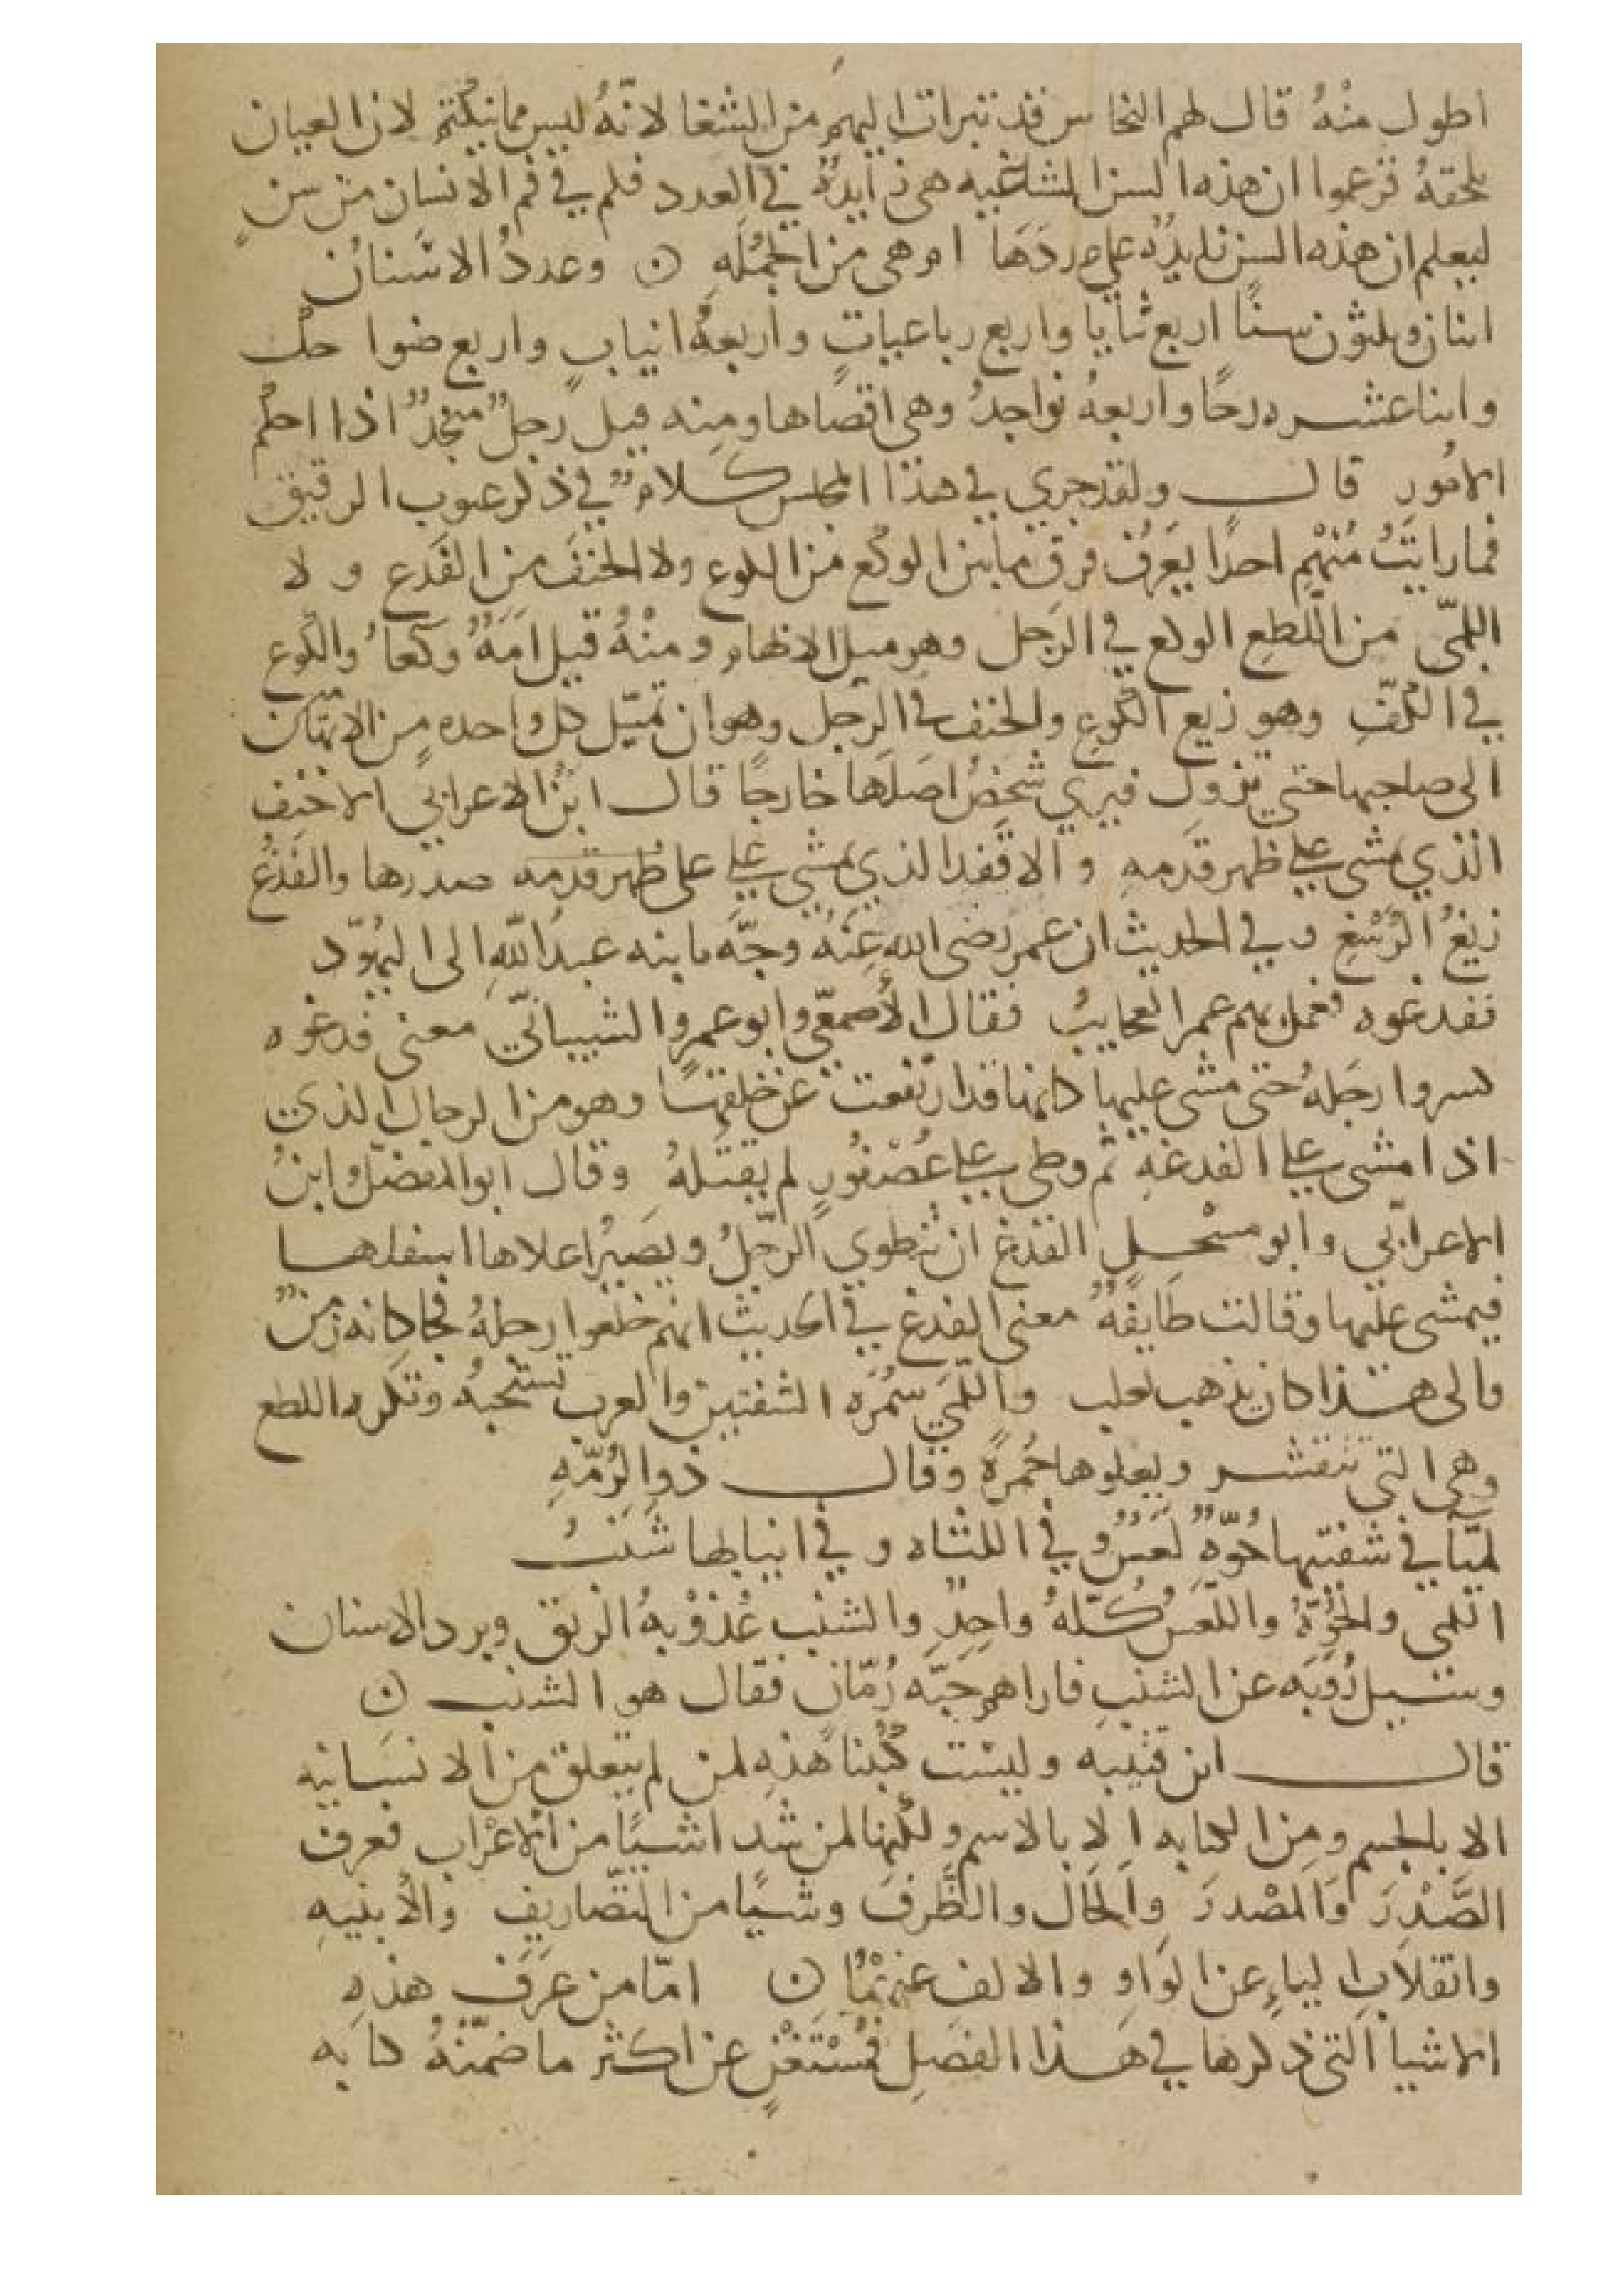 اطول منْهُ قال لهم النخاس قد تبرات اليهم من الشغا لانّهُ ليس مما نكتم لان العيان
يلحقهُ فزعموا ان هذه السن الشاغيه هى زايدهٌ في العدد فلم في فم الانسان من سنٍ
ليعلم ان هذه السن زايدهٌ على عددها ام هى من الجُملَهِ ن وعددُ الاسْنان
اثنان وثلثون سنًا اربع ثنايا واربع رباعياتٍ واربعهُ انيابٍ واربع ضواحك
واثنا عشر ه رحًا واربعهُ نواجدُ وهى اقصاها ومنه قيل رجلٌ منجدٌ اذا احكم
الامُور قال ولقد جري في هذا المجلس كلامٌ في ذكر عيوب الرقيق
فما رايتُ منْهُم احدًا يعَرفُ فرق ما بين الوكع من الكوع ولا الحنفَ من الفَدَع ولا
اللمىّ من اللَّطعِ الوكع في الرَجل وهو ميل الابهام ومنْهُ قيل امَهٌ وكعاُ والكوع
في الكفّ وهو زيع الكُوعِ والحنف في الرّجل وهو ان تميّل كل واحده من الابهامين
الى صاحبها حتى تزول فيري شخصُ اصَلها خارجًا قال ابنُ الاعرابي الاحنف
الذي يمشى على ظهر قدَمهِ والاقفد الذي يمشي على على ظهر قدمه صدرها والفدغُ
زيغُ الرُسْغِ وفي الحديث ان عمر رضى الله عنهُ وجّه بابنه عبدُ اللهِ الى اليهود
ففدغوه فعمل بهم عمر العجايبُ فقال الأصمعّي وابو عمرٍو الشيبانّي معنى فدغوه
كسروا رجَلهُ حتى مشى عليها كانها قد ارتفعت عن خلقتها وهو من الرجال الذي
اذا مشى على الفدغهِ ثم وطى على عُصْفورٍ لم يقتلهُ وقال ابو المفضل وابنُ
الاعرابّي وابو مسْحلٍ الفَدغ ان تنطوي الرّجلُ ويصَيرُ اعلاها اسفلها
فيمشى عليها وقالت طايفهٌ معنى الفدغ في الحديث انهم خلعوا رجلهُ فجا كانه زَمِنٌ
والى هذا كان يذهب ثعلب واللّمَي سُمْرَه الشفتين والعرب تستحبُهُ وتكره اللطع
وهى التي تتقشر ويعلوها حُمرَةٌ وقال ذو الرُمّهِ
لميَآ في شفتيها حُوّهٌ لَعَسٌ وفي اللثاه وفي انيابها شَنَبُ
اللمى والحُوّهُ واللّعَس كُلّهُ واحِدٌ والشنَب عُذوْبهُ الريق وبرد الاسنان
وسئيل رُوبَه عن الشنَبِ فاراهم حَبّه رُمّان فقال هو الشنب ن
قال ابن قتيبه وليست كُتُبنا هَذِهِ لمن لم يتعلق من الانسانيه
الا بالجسم ومن الكتابه الا بالاسم ولكنها لمن شدا شيًا من الاعْراب فعرف
الصَّدْرَ وَالمصْدرَ والحَال والظَّرفَ وشيًا من التصَّاريف والأبنيهِ
وانقلابِ الياءِ عن الوَاوِ والالف عنهُمَا ن امّا من عَرَفَ هذه
الاشيا التي ذكرها في هذا الفصلِ فمُسْتَغْنٍ عن اكثر ما ضمّنهُ كتابه